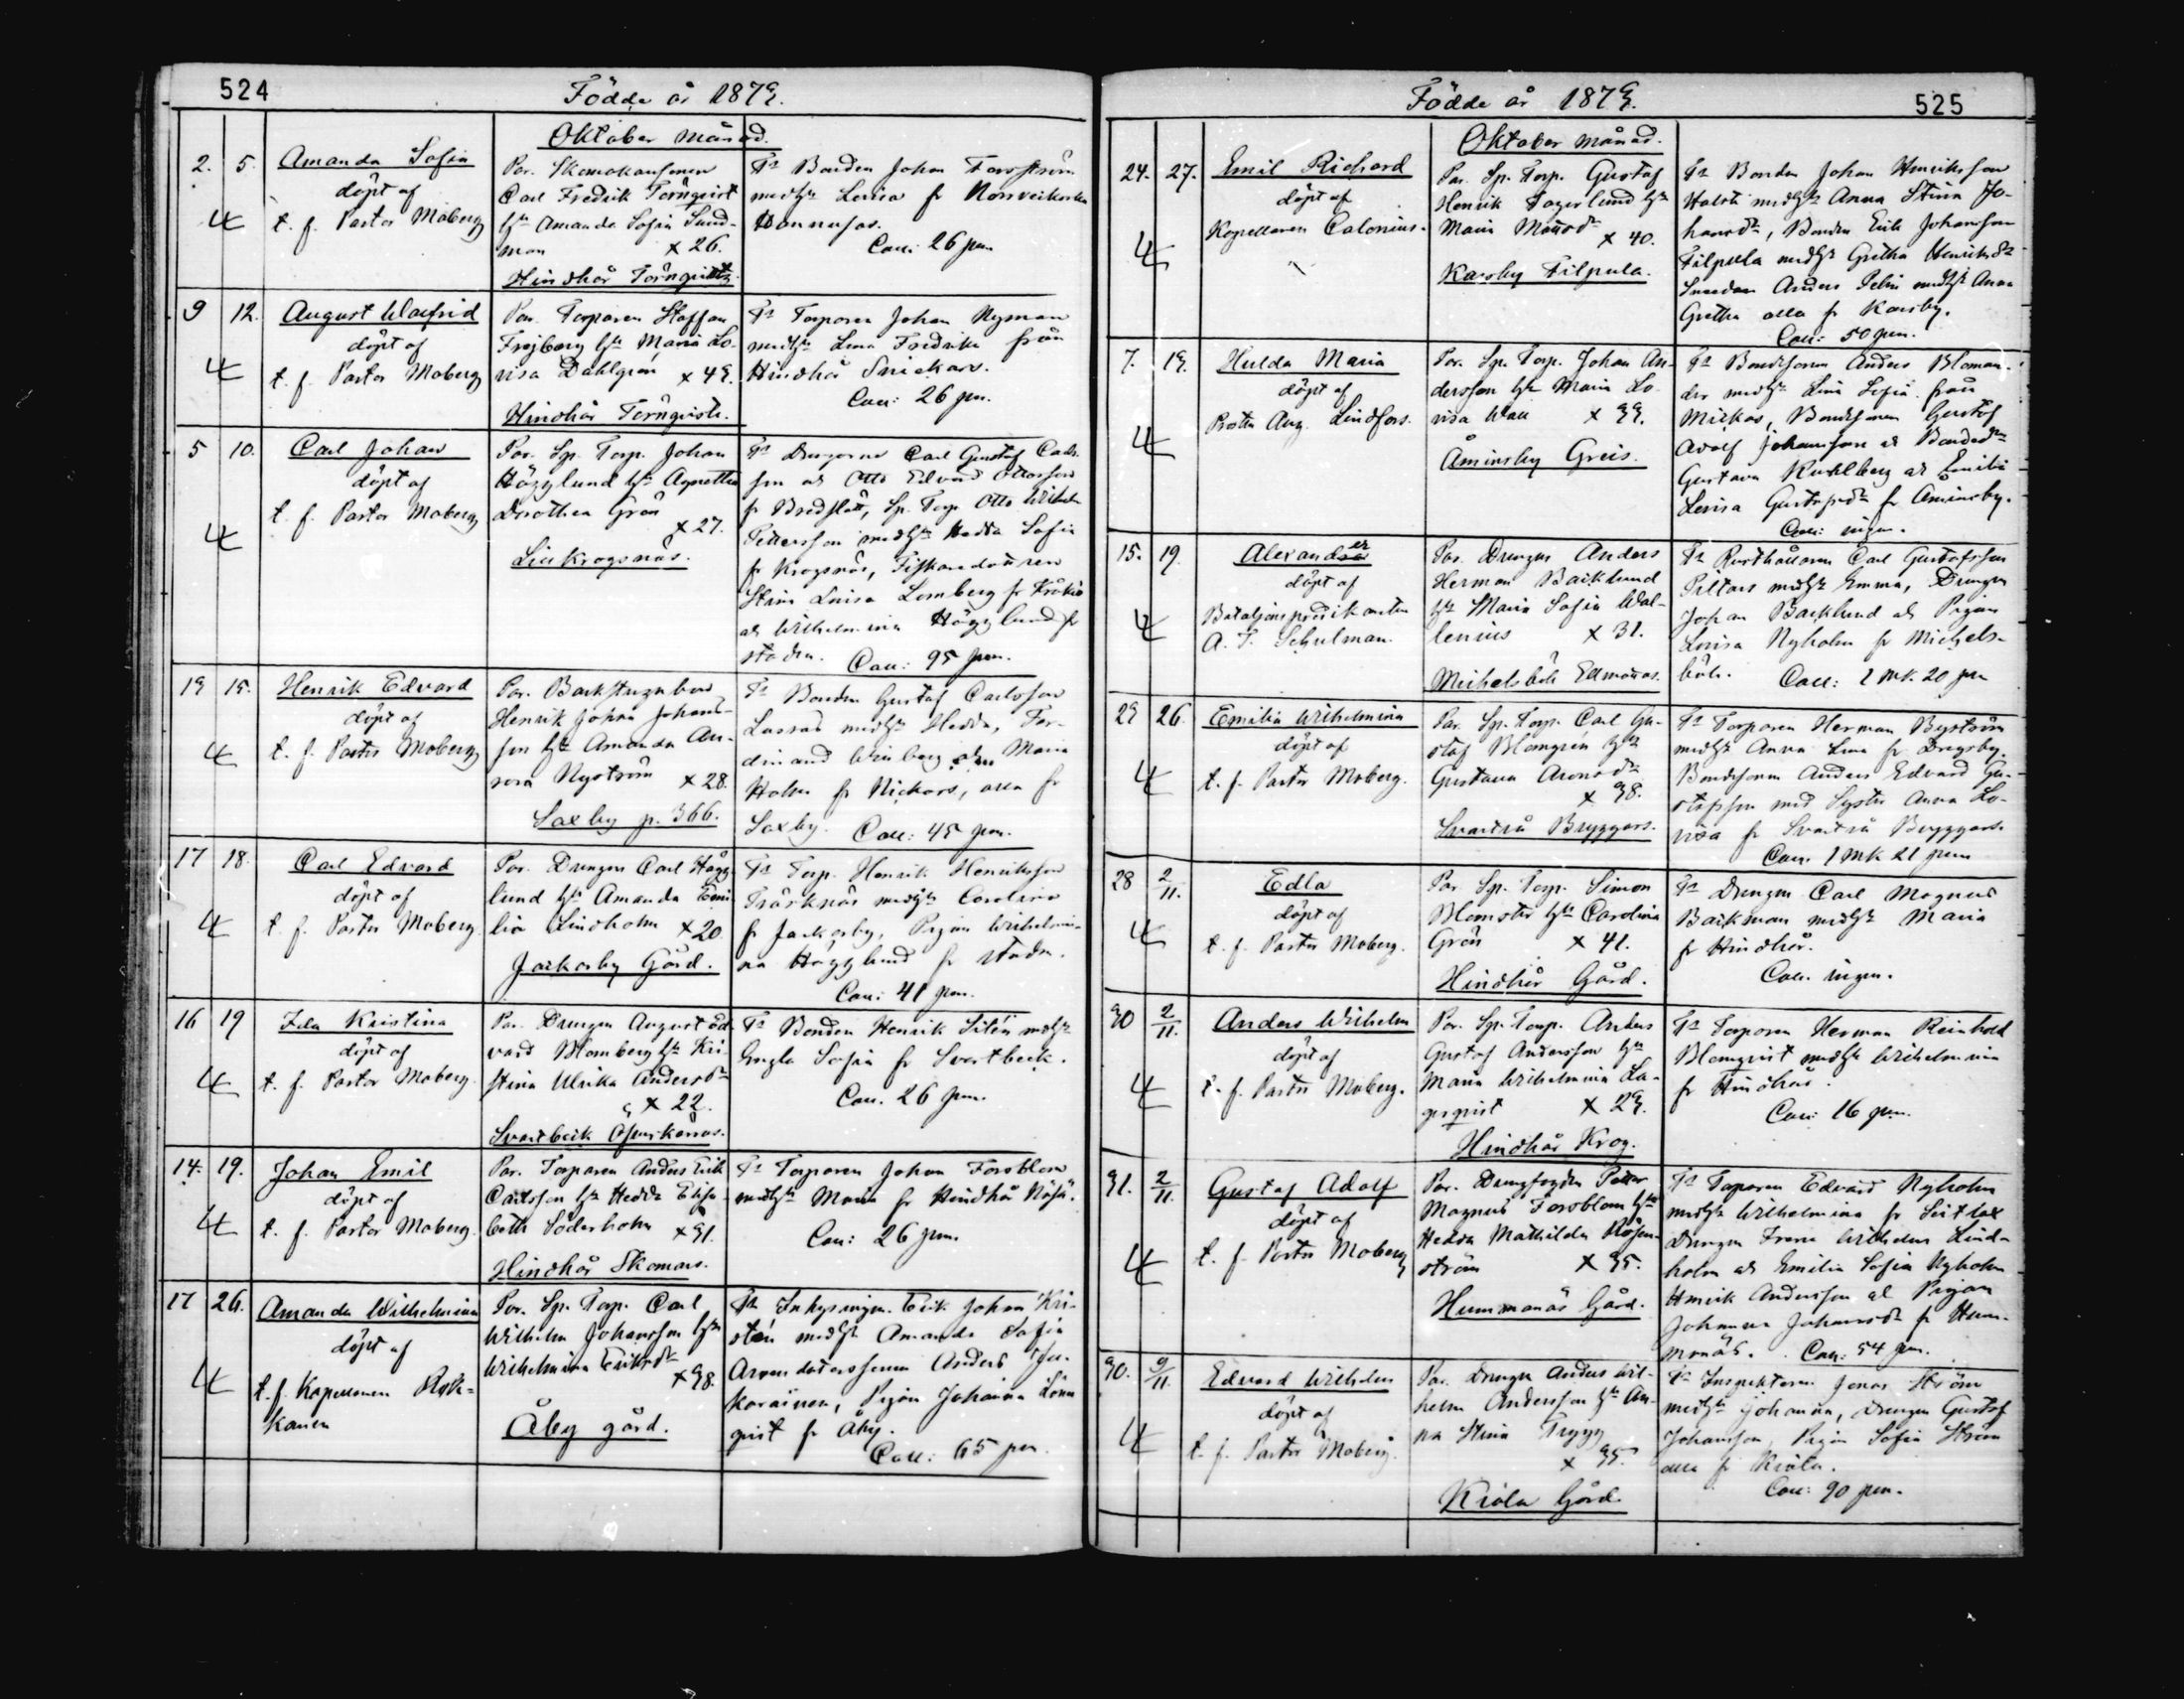 524
Födde år 1873.
Oktober månad.
2. 5. Amanda Sofia
döpt af
t. f. Pastor Moberg
Par. Skomakaresonen
Carl Fredrik Törnqvist
hu Amanda Sofia Sund-
man x 26.
Hindhår Törnqvists
Fr Bonden Johan Forsström
med hu Lovisa fr Norrveckoski
Hannusas.
Coll: 26 pen.
9 12. August Walfrid
döpt af
t. f. Pastor Moberg
Par. Torparen Staffan
Frejborg hu Maria Lo-
visa Dahlgren x 43.
Hindhår Törnqvists.
Fr Torparen Johan Nyman
med hu Lena Fredrika från
Hindhår Snickars.
Coll: 26 pen.
5 10. Carl Johan
döpt af
t. f. Pastor Moberg
Par. Sp. Torp. Johan
Högglund hu Agnetha
Dorothea Grön
x 27.
Lill Krogsnäs.
Fr Drengarne Carl Gustaf Carls-
son och Otto Edvard Ottosson
fr Bredslätt, Sp. Torp Otto Wilhelm
Pettersson med hu Hedda Sofia
fr Krogsnäs, Fiskaredottren
Stina Lovisa Lomberg fr Kråkö
och Wilhelmina Högglund fr
staden. Coll: 95 pen.
13 15. Henrik Edvard
döpt af
t. f. Pastor Moberg
Par. Backstugukarl
Henrik Johan Johans-
son hu Amanda Au-
rora Nyström x 28.
Saxby p. 366.
Fr Bonden Gustaf Carlsson
Lassas med hu Hedda, Fer-
dinand Winberg och Maria
Holm fr Nickars, alla fr
Saxby. Coll: 45 pen.
17 18. Carl Edvard
döpt af
t. f. Pastor Moberg
Par. Drengen Carl Högg-
lund hu Amanda Emi-
lia Lindholm x 20.
Jackarby Gård.
Fr Torp. Henrik Henriksson
Träsknäs med hu Carolina
fr Jackarby, Pigan Wilhelmi-
na Högglund fr staden.
Coll: 41 pen.
16 19 Ida Kristina
döpt af
t. f. Pastor Moberg
Par. Drengen August Ed-
vard Blomberg hu Kri-
stina Ulrika Andersdr
x 22.
Svartbeck
Fr Bonden Henrik Silén med hu
Engla Sofia fr Svartbeck.
Coll. 26 pen.
14. 19. Johan Emil
döpt af
t. f. Pastor Moberg
Par. Torparen Anders Erik
Carlsson hu Hedda Elisa-
beth Söderholm x 31.
Hindhår Skomars.
Fr Torparen Johan Forsblom
med hu Maria fr Hindhår Nöjsä.
Coll: 26 pen.
17 26. Amanda Wilhelmina
döpt af
t. f. Kapellanen
Par. Sp. Torp. Carl
Wilhelm Johansson hu
Wilhelmina Eriksdr
x 38.
Åby gård.
Fr Inhysingen Erik Johan Kri-
stén med hu Amanda Sofia
Arrendatorssonen Anders
Pigan Johanna Lönn-
qvist fr Åby.
Coll: 65 pen.
Födde år 1873.
525
Oktober månad.
24. 27. Emil Richard
döpt af
Kapellanen Calonius.
Par. Sp. Torp. Gustaf
Henrik Fagerlund hu
Maria Månsdr x 40.
Karsby Filpula.
Fr Bonden Johan Henriksson
Halsti med hu Anna Stina Jo-
hansdr, Bonden Erik Johansson
Filpula med hu Gretha Henriksdr
Smeden Anders Selin med hu Anna
Gretha alla fr Karsby.
Coll: 50 pen.
7. 13. Hulda Maria
döpt af
Prosten Aug. Lindfors.
Par. Sp. Torp. Johan An-
dersson hu Maria Lo-
visa Wall x 33.
Åminsby Greis.
Fr Bondesonen Anders Bloman-
der med hu Lina Sofia från
Mickas, Bondesonen Gustaf
Adolf Johansson och Bondedr
Gustava Kuhlberg och Emilia
Lovisa Gustafsdr fr Åminsby.
Coll: ingen.
15. 19. Alexander
döpt af
Bataljonspredikanten
A. F. Schulman.
Par. Drengen Anders
Herman Backlund
hu Maria Sofia Wal-
lenius x 31.
Michelsböle Edmöras.
Fr Rusthållaren Carl Gustafsson
Peltars med hu Emma, Drengen
Johan Backlund och Pigan
Lovisa Nyholm fr Michels-
böle. Coll: 1 mk. 20 pen
23 26. Emilia Wilhelmina
döpt af
t. f. Pastor Moberg.
Par. Sp. Torp. Carl Gu-
staf Blomgren hu
Gustava Aronsdr
x 38.
Svartså Bryggars.
Fr Torparen Herman Byström
med hu Anna Lena fr Drägsby.
Bondesonen Anders Edvard Gu-
stafsson med Syster Anna Lo-
visa fr Svartså Bryggars.
Coll. 1 mk 21 pen
28 2/11. Edla
döpt af
t. f. Pastor Moberg.
Par Sp. Torp. Simon
Blomster hu Carolina
Grön x 41.
Hindhår Gård.
Fr Drengen Carl Magnus
Backman med hu Maria
fr Hindhår.
Coll. ingen.
30 2/11. Anders Wilhelm
döpt af
t. f. Pastor Moberg.
Par. Sp. Torp. Anders
Gustaf Andersson hu
Maria Wilhelmina La-
gerqvist x 23.
Hindhår Krog.
Fr Torparen Herman Reinhold
Blomqvist med hu Wilhelmina
fr Hindhår.
Coll: 16 pen.
31. 2/11. Gustaf Adolf
döpt af
t. f. Pastor Moberg
Par. Drengfogden Petter
Magnus Forsblom hu
Hedda Mathilda Rosen-
ström x 35.
Hummanäs Gård.
Fr Torparen Edvard Nyholm
med hu Wilhelmina fr Seitlax
Drengen Frans Wilhelm Lind-
holm och Emilia Sofia Nyholm
Henrik Andersson och Pigan
Johanna Johansdr fr Hum-
manäs. Coll: 54 pen.
30. 9/11. Edvard Wilhelm
döpt af
t. f. Pastor Moberg.
Par. Drengen Anders Wil-
helm Andersson hu An-
na Stina Trygg
x 35.
Kiala Gård.
Fr Inspektoren Jonas Ström
med hu Johanna, Drengen Gustaf
Johansson, Pigan Sofia Ström
alla fr Kiala.
Coll: 90 pen.